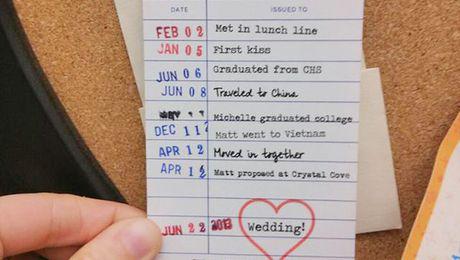 DATE ISSUED TO
FEB 02 Met in lunch line
JAN 05 First kiss
JUN 06 Graduated from CHS
JUN 08 Traveled to China
Michelle graduated college
DEC 11 Matt went to Vietnam
APR 12 Moved in together
APR 12 Matt proposed at Crystal Cove
JUN 22 2013 Wedding!